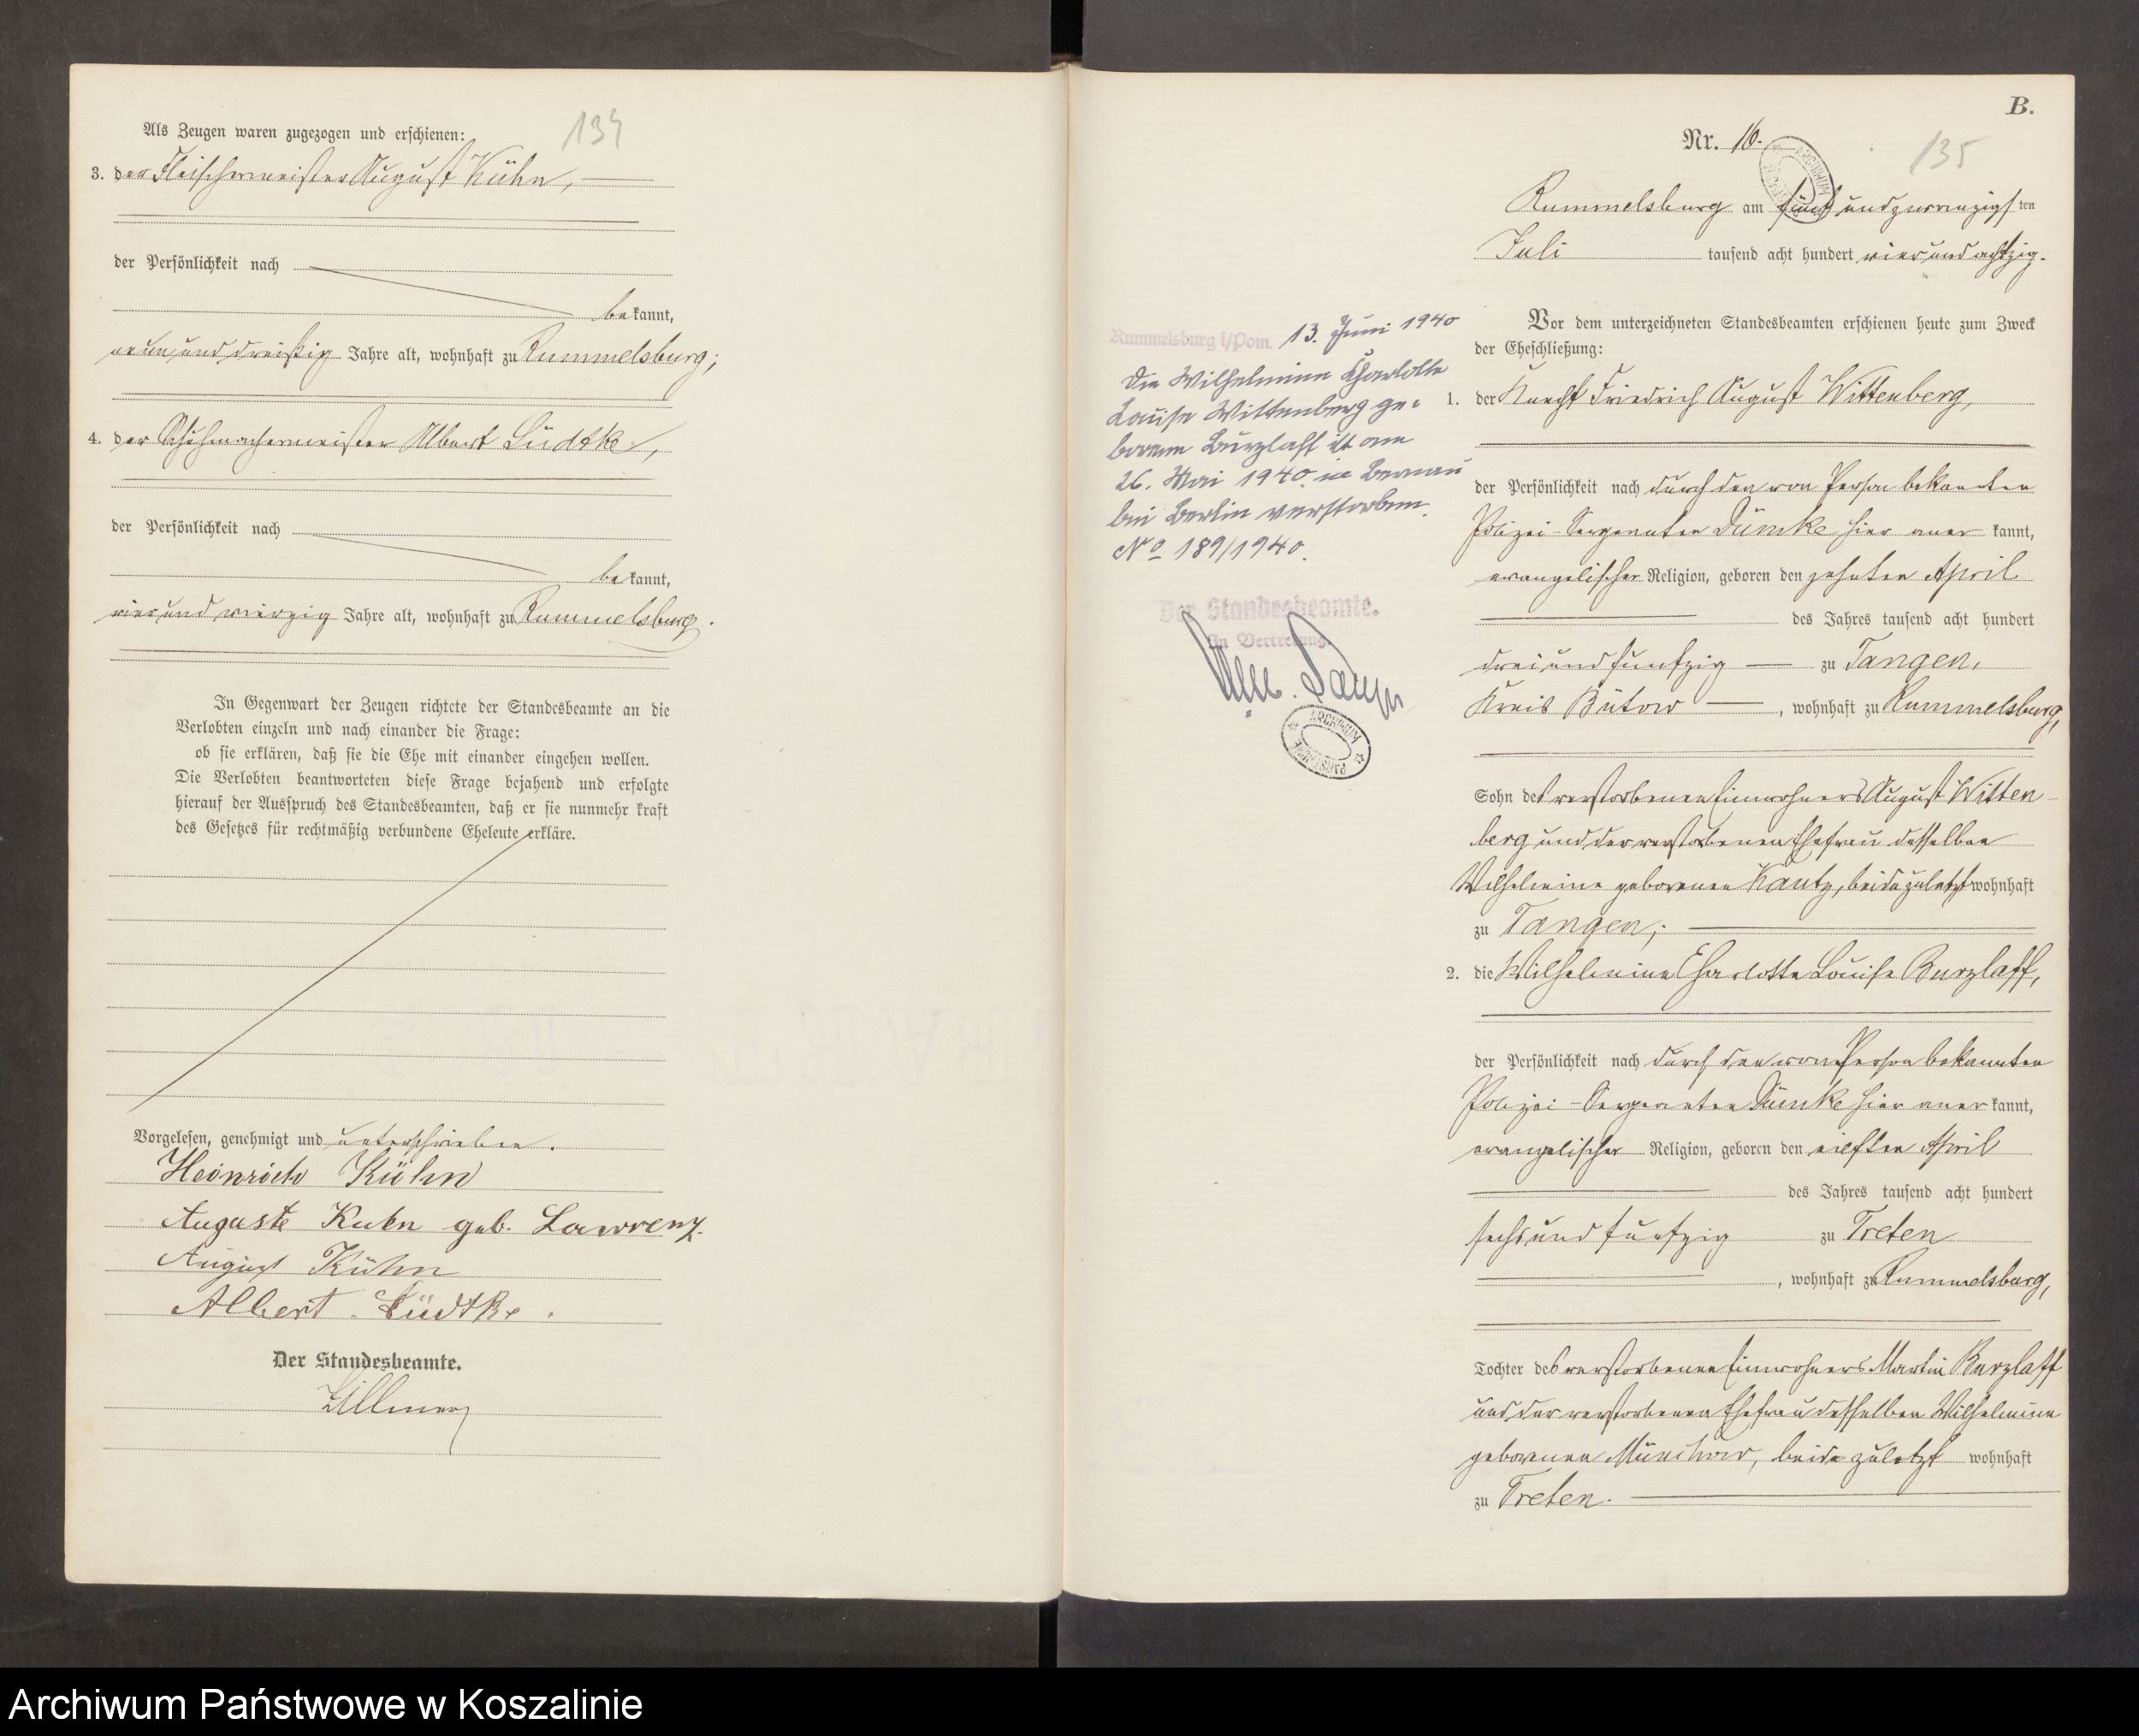 134
Als Zeugen waren zugezogen und erschienen:
3. der Fleischermeister August Kühn,
der Persönlichkeit nach
bekannt,
neun und dreißig Jahre alt, wohnhaft zu Rummelsburg;
4. der Schuhmachermeister Albert Lüdtke,
der Persönlichkeit nach
bekannt,
vier und vierzig Jahre alt, wohnhaft zu Rummelsburg.
In Gegenwart der Zeugen richtete der Standesbeamte an die
Verlobten einzeln und nach einander die Frage:
ob sie erklären, daß sie die Ehe mit einander eingehen wollen.
Die Verlobten beantworteten diese Frage bejahend und erfolgte
hierauf der Ausspruch des Standesbeamten, daß er sie nunmehr kraft
des Gesetzes für rechtmäßig verbundene Eheleute erkläre.
Vorgelesen, genehmigt und unterschrieben.
Heinrich Kühn
Auguste Kuhn geb. Lawrenz.
August Kühn
Albert Lüdtke.
Der Standesbeamte.
B.
Nr. 16.
135
Rummelsburg am fünf und zwanzigsten
Juli tausend acht hundert vier und achtzig.
Vor dem unterzeichneten Standesbeamten erschienen heute zum Zweck
der Eheschließung:
1. der Knecht Friedrich August Wittenberg,
der Persönlichkeit nach durch den von Person bekannten
Polizei-Sergeanten Dümke hier anerkannt,
evangelischer Religion, geboren den zehnten April
des Jahres tausend acht hundert
drei und funfzig zu Tangen,
Kreis Bütow, wohnhaft zu Rummelsburg,
Sohn des verstorbenen Einwohners August Witten-
berg und der verstorbenen Ehefrau desselben
Wilhelmine geborenen Kautz, beide zuletzt wohnhaft
zu Tangen;
2. die Wilhelmine Charlotte Louise Burzlaff,
der Persönlichkeit nach durch den von Person bekannten
Polizei-Sergeanten Dümke hier anerkannt,
evangelischer Religion, geboren den eilften April
des Jahres tausend acht hundert
sechs und funfzig zu Treten
, wohnhaft zu Rummelsburg,
Tochter des verstorbenen Einwohners Martin Burzlaff
und der verstorbenen Ehefrau desselben Wilhelmine
geborenen, beide zuletzt wohnhaft
zu Treten.
Rummelsburg i/Pom. 13. Juni 1940
Die Wilhelmine Charlotte
Louise Wittenberg ge-
borene Burzlaff ist am
26. Mai 1940 in Bernau
bei Berlin verstorben.
No 189/1940.
Der Standesbeamte.
In Vertretung
ARCHIWUM
PAŃSTWOWE
Archiwum Państwowe w Koszalinie